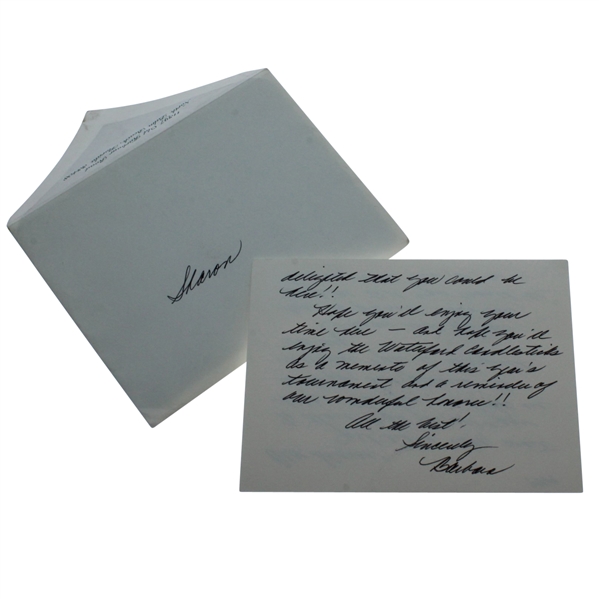 Old Road
North Palm Beach, Florida 33408
Sharon
delighted that you could be
here!!
Hope you'll enjoy your
time here — and hope you'll
enjoy the Waterford Candlesticks
as a memento of this year's
tournament and a reminder of
our wonderful honoree!!
All the best!
Sincerely
Barbara